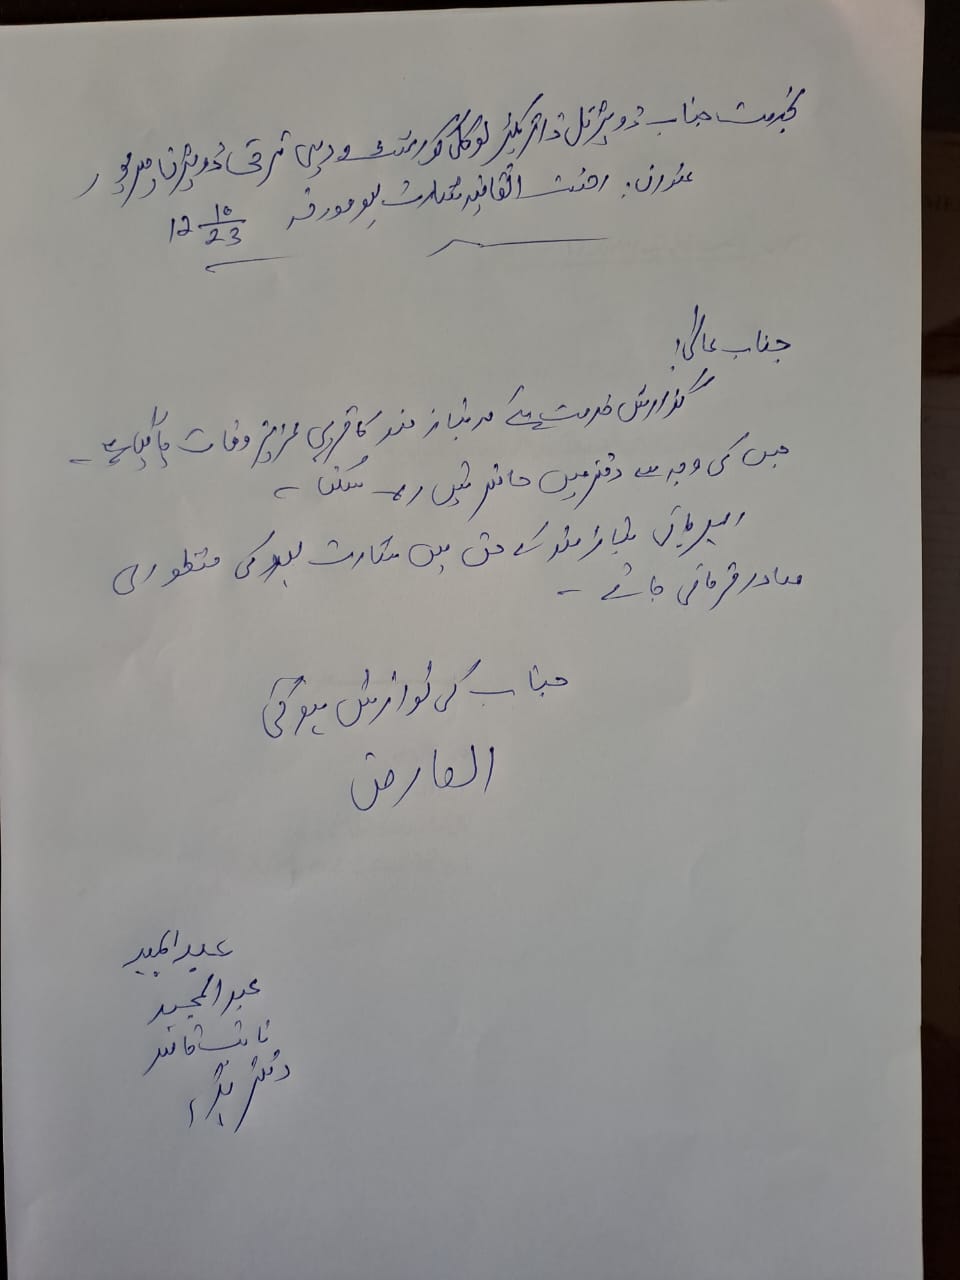 بخدمت جناب ڈویژنل ڈائریکٹر لوکل گورنمنٹ و دیہی ترقی ڈویژن میرپور
عنوان: رخصت اتفاقیہ یوم مورخہ 12 10/23
جناب عالی!
گزارش خدمت ہے کہ نیاز مند کا قریبی عزیز وفات پا گیا ہے۔
جس کی وجہ سے دفتر میں حاضر نہیں رہ سکتا۔
نیاز مند کے حق میں یوم کی منظوری
صادر فرمائی جائے۔
جناب کی نوازش ہوگی
العارض
عبدالمجید
عبدالمجید
نائب قاصد
دفتر ہذا